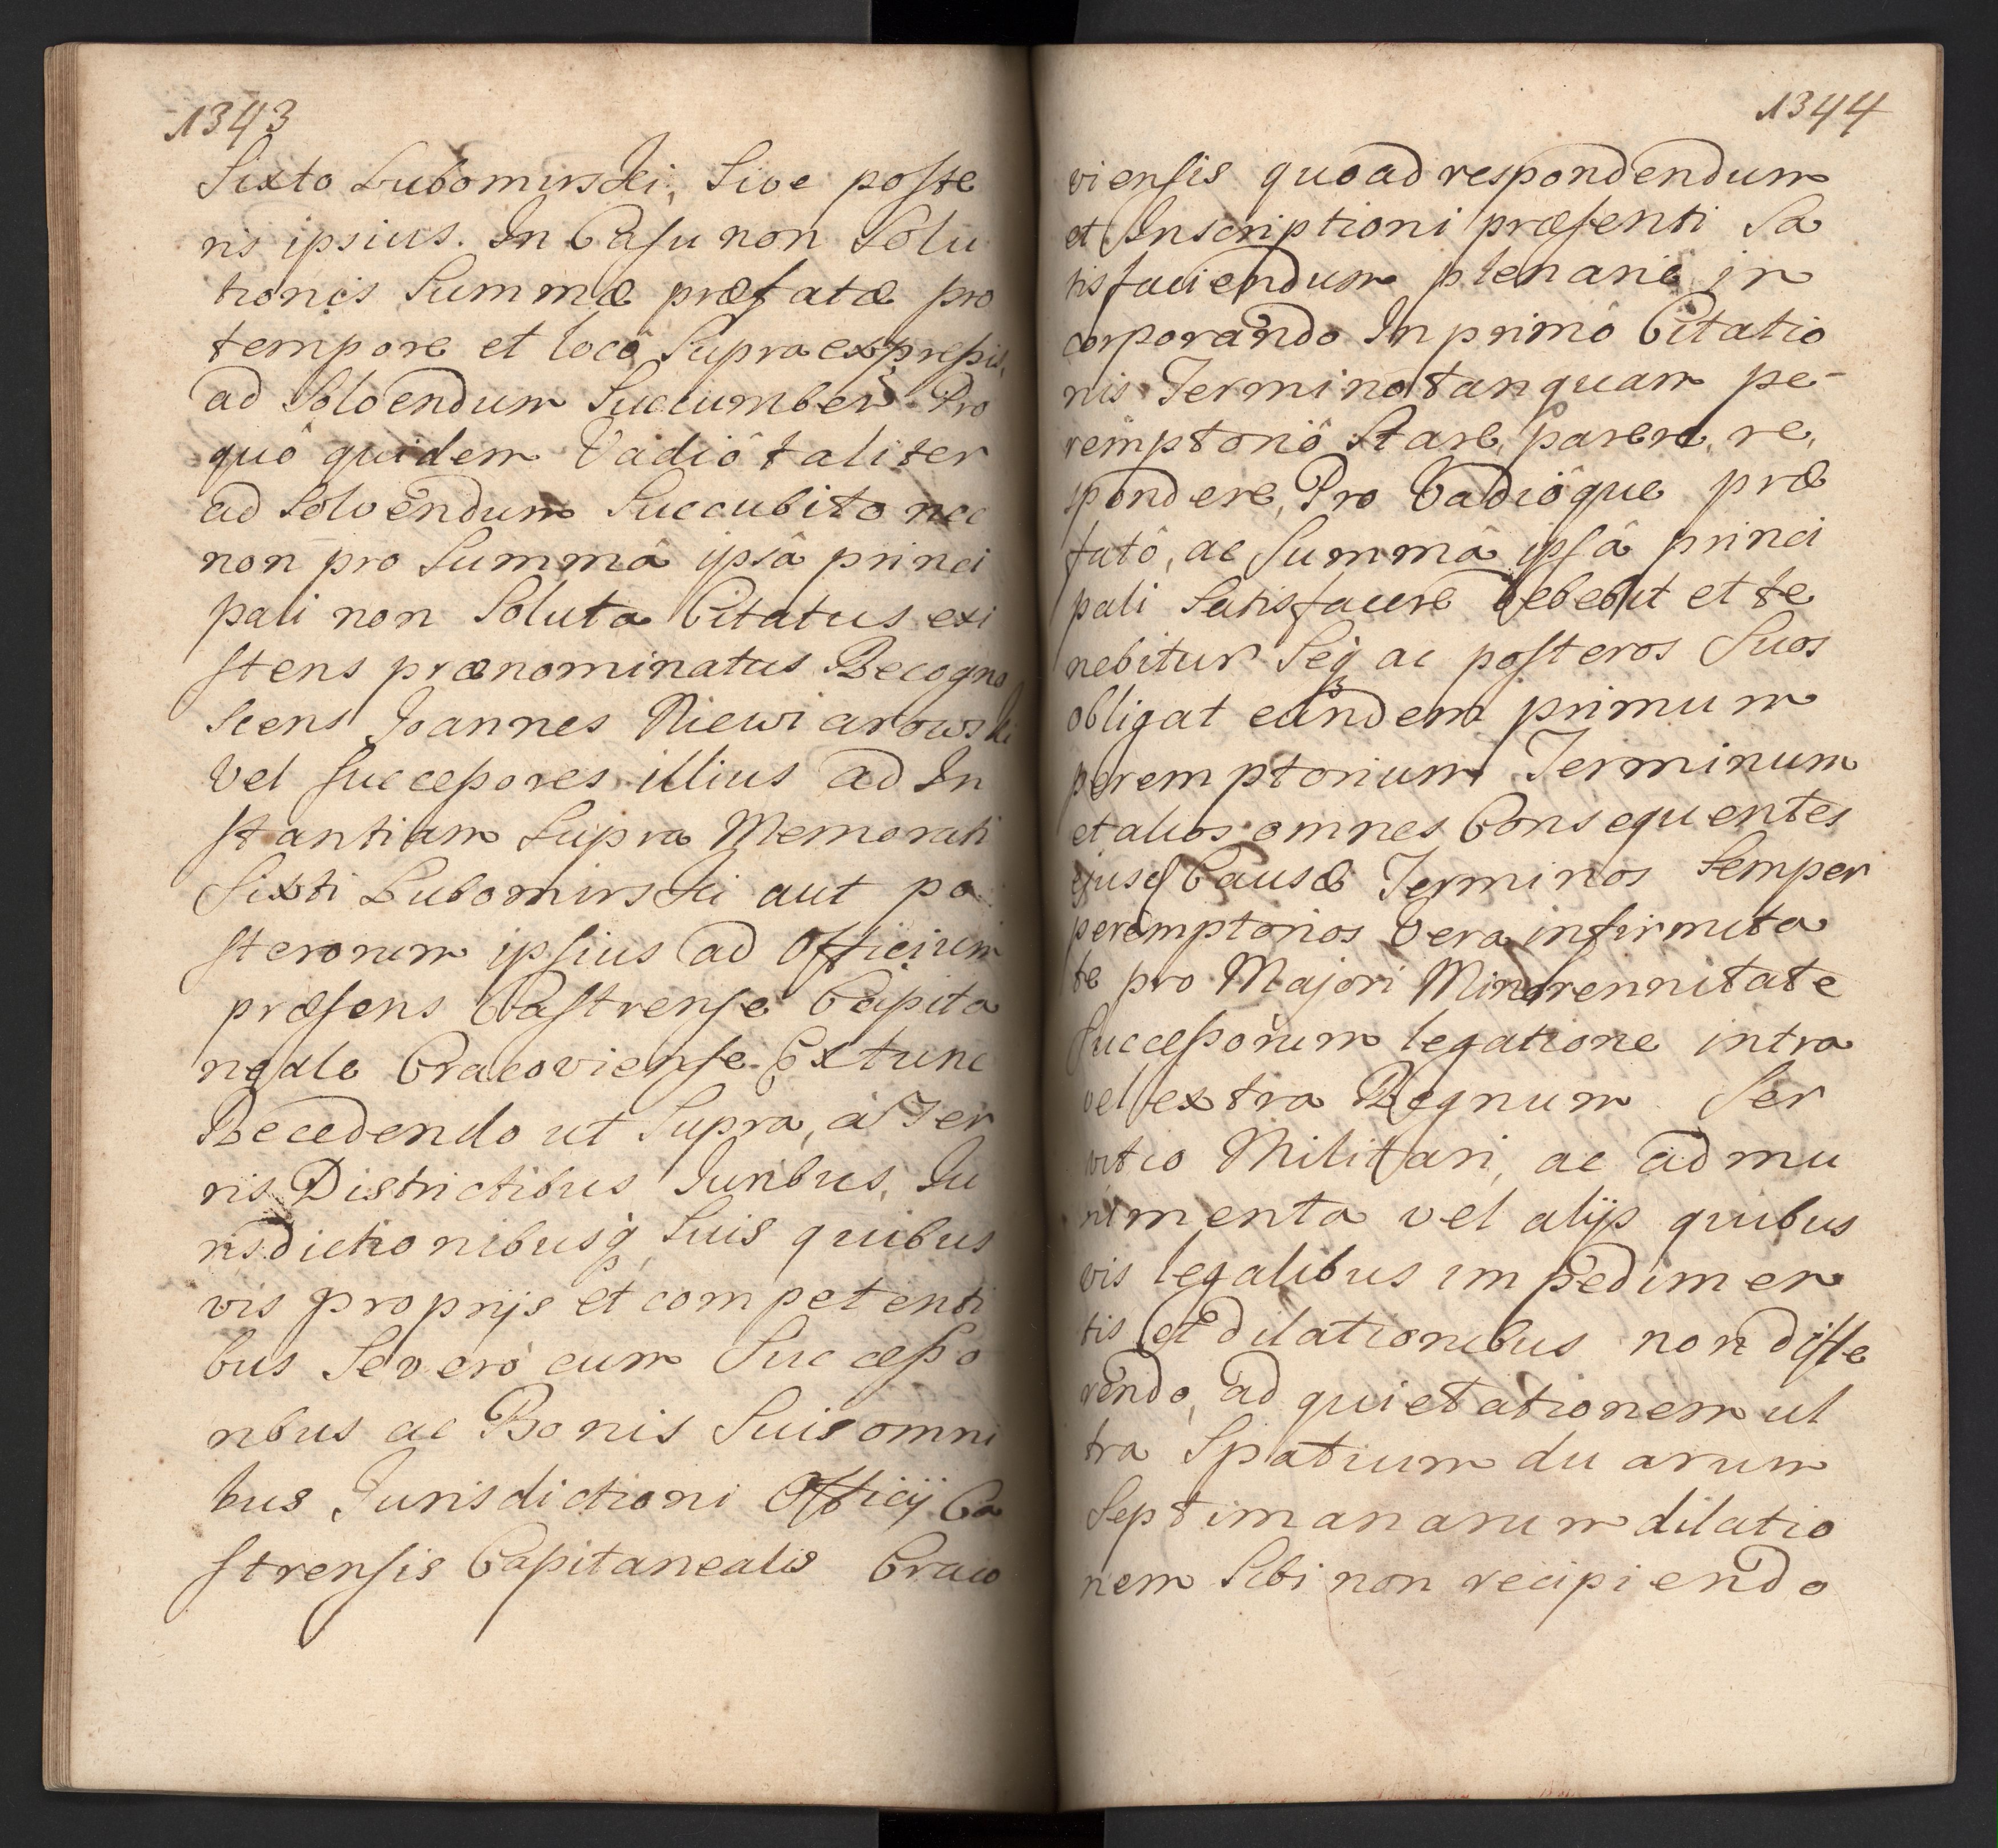 1343
Sixto Lubomirski, Sive poste
ris ipsius. In Casu non Solu
tionis Summæ præfatæ pro
tempore et locô Supra expressis,
ad Solvendum Succumbet. Pro
quô quidem Vadiô taliter
ad Solvendum Succubito nec
non pro Summâ ipsâ princi
pali non Soluta Citatus exi
stens prænominatus Recogno
scens Joannes Niewiarowski
Vel successores illius ad In
stantiam Supra Memorati
Sixti Lubomirski aut po
sterorum ipsius ad Officium
præsens Castrense Capita
neale Cracoviense. Extunc
Recedendo ut Supra, à Ter
ris Districtibus Juribus, Ju
risdictionibusq̃ Suis quibus
vis proprijs et competenti
bus Severò cum Successo
ribus ac Bonis Suis omni
bus Jurisdictioni Officij Ca
strensis Capitanealis Craco
1344
viensis quoad respondendum
et Inscriptioni præsenti Sa
tisfaciendum plenariè in
corporando In primô Citatio
nis Termino tanquam pe-
remptoriô Stare, parere, re,
spondere, Pro Vadiôque præ
fatô, ac Summâ ipsâ princi
pali Satisfacere debebit et te
nebitur Seq̃ ac posteros Suos
obligat eundem primum
peremptorium Terminum
et alios omnes Consequentes
ejusd Causæ Terminos Semper
peremptorios Vera infirmita
te pro Majori Minorennitate
Successorum legatione intra
vel extra Regnum Ser
vitio Militari, ac ad mu
nimenta vel alijs quibus
vis legalibus impedimen
tis et dilationibus non diffe
rendo, ad quietationem ul
tra Spatium duarum
Septimanarum dilatio
nem Sibi non recipiendo